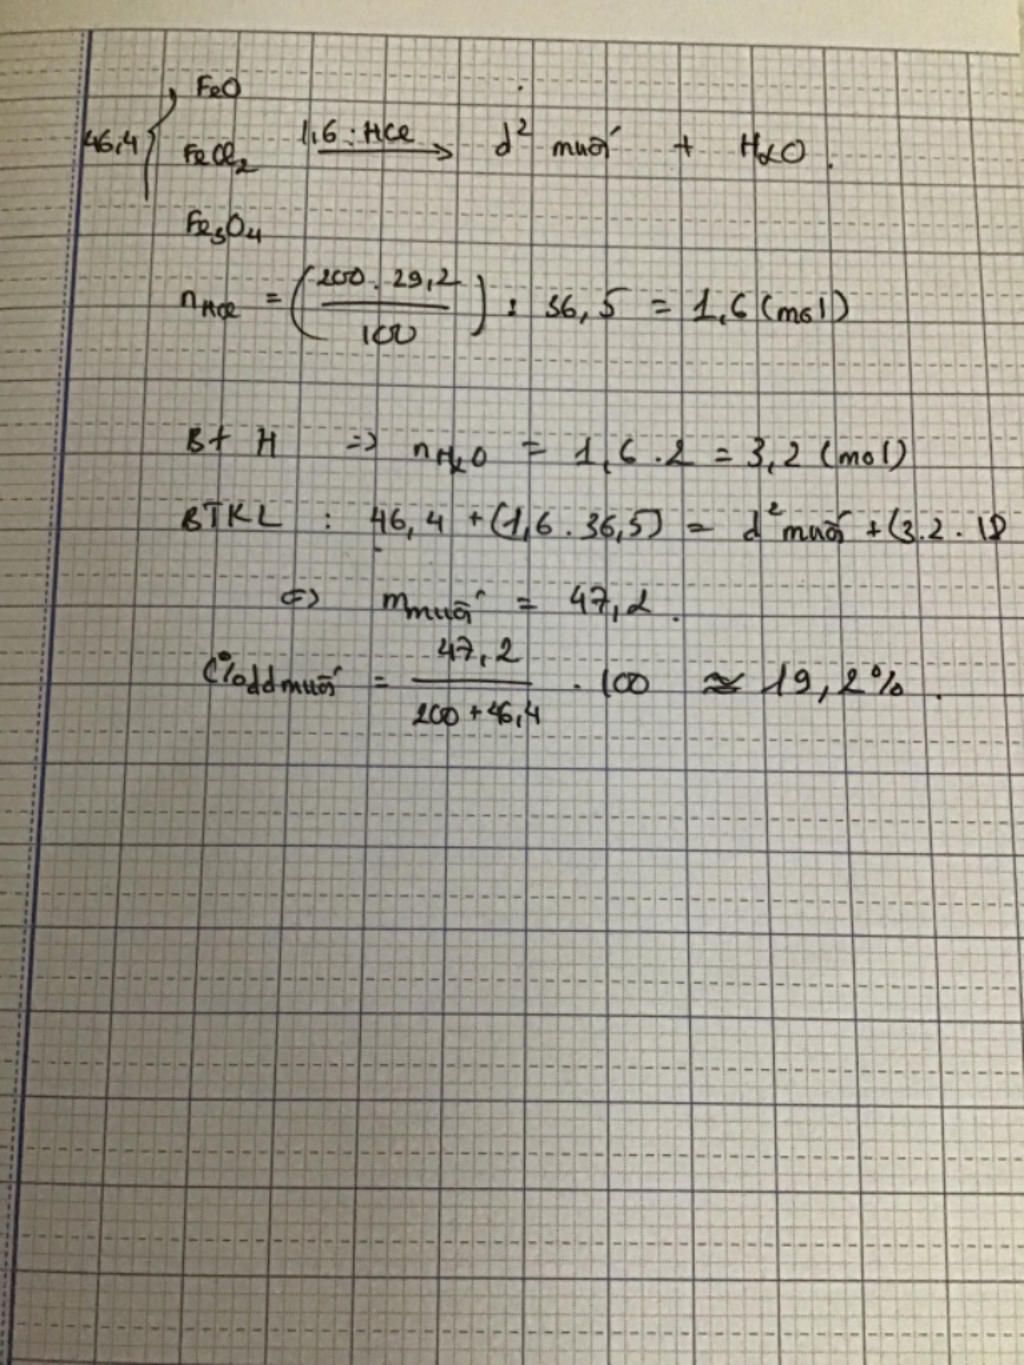 FeO
46,4 { FeCl2 1,6 : HCl → d² muối + H2O.
Fe3O4
nHCl = (200 . 29,2 / 100) : 36,5 = 1,6 (mol)
Bt H => nH2O = 1,6 . 2 = 3,2 (mol)
BTKL : 46,4 + (1,6 . 36,5) = d² muối + (3.2 . 18
<=> mmuối = 47,2.
C%ddmuối = 47,2 / 200 + 46,4 . 100 ≈ 19,2%.